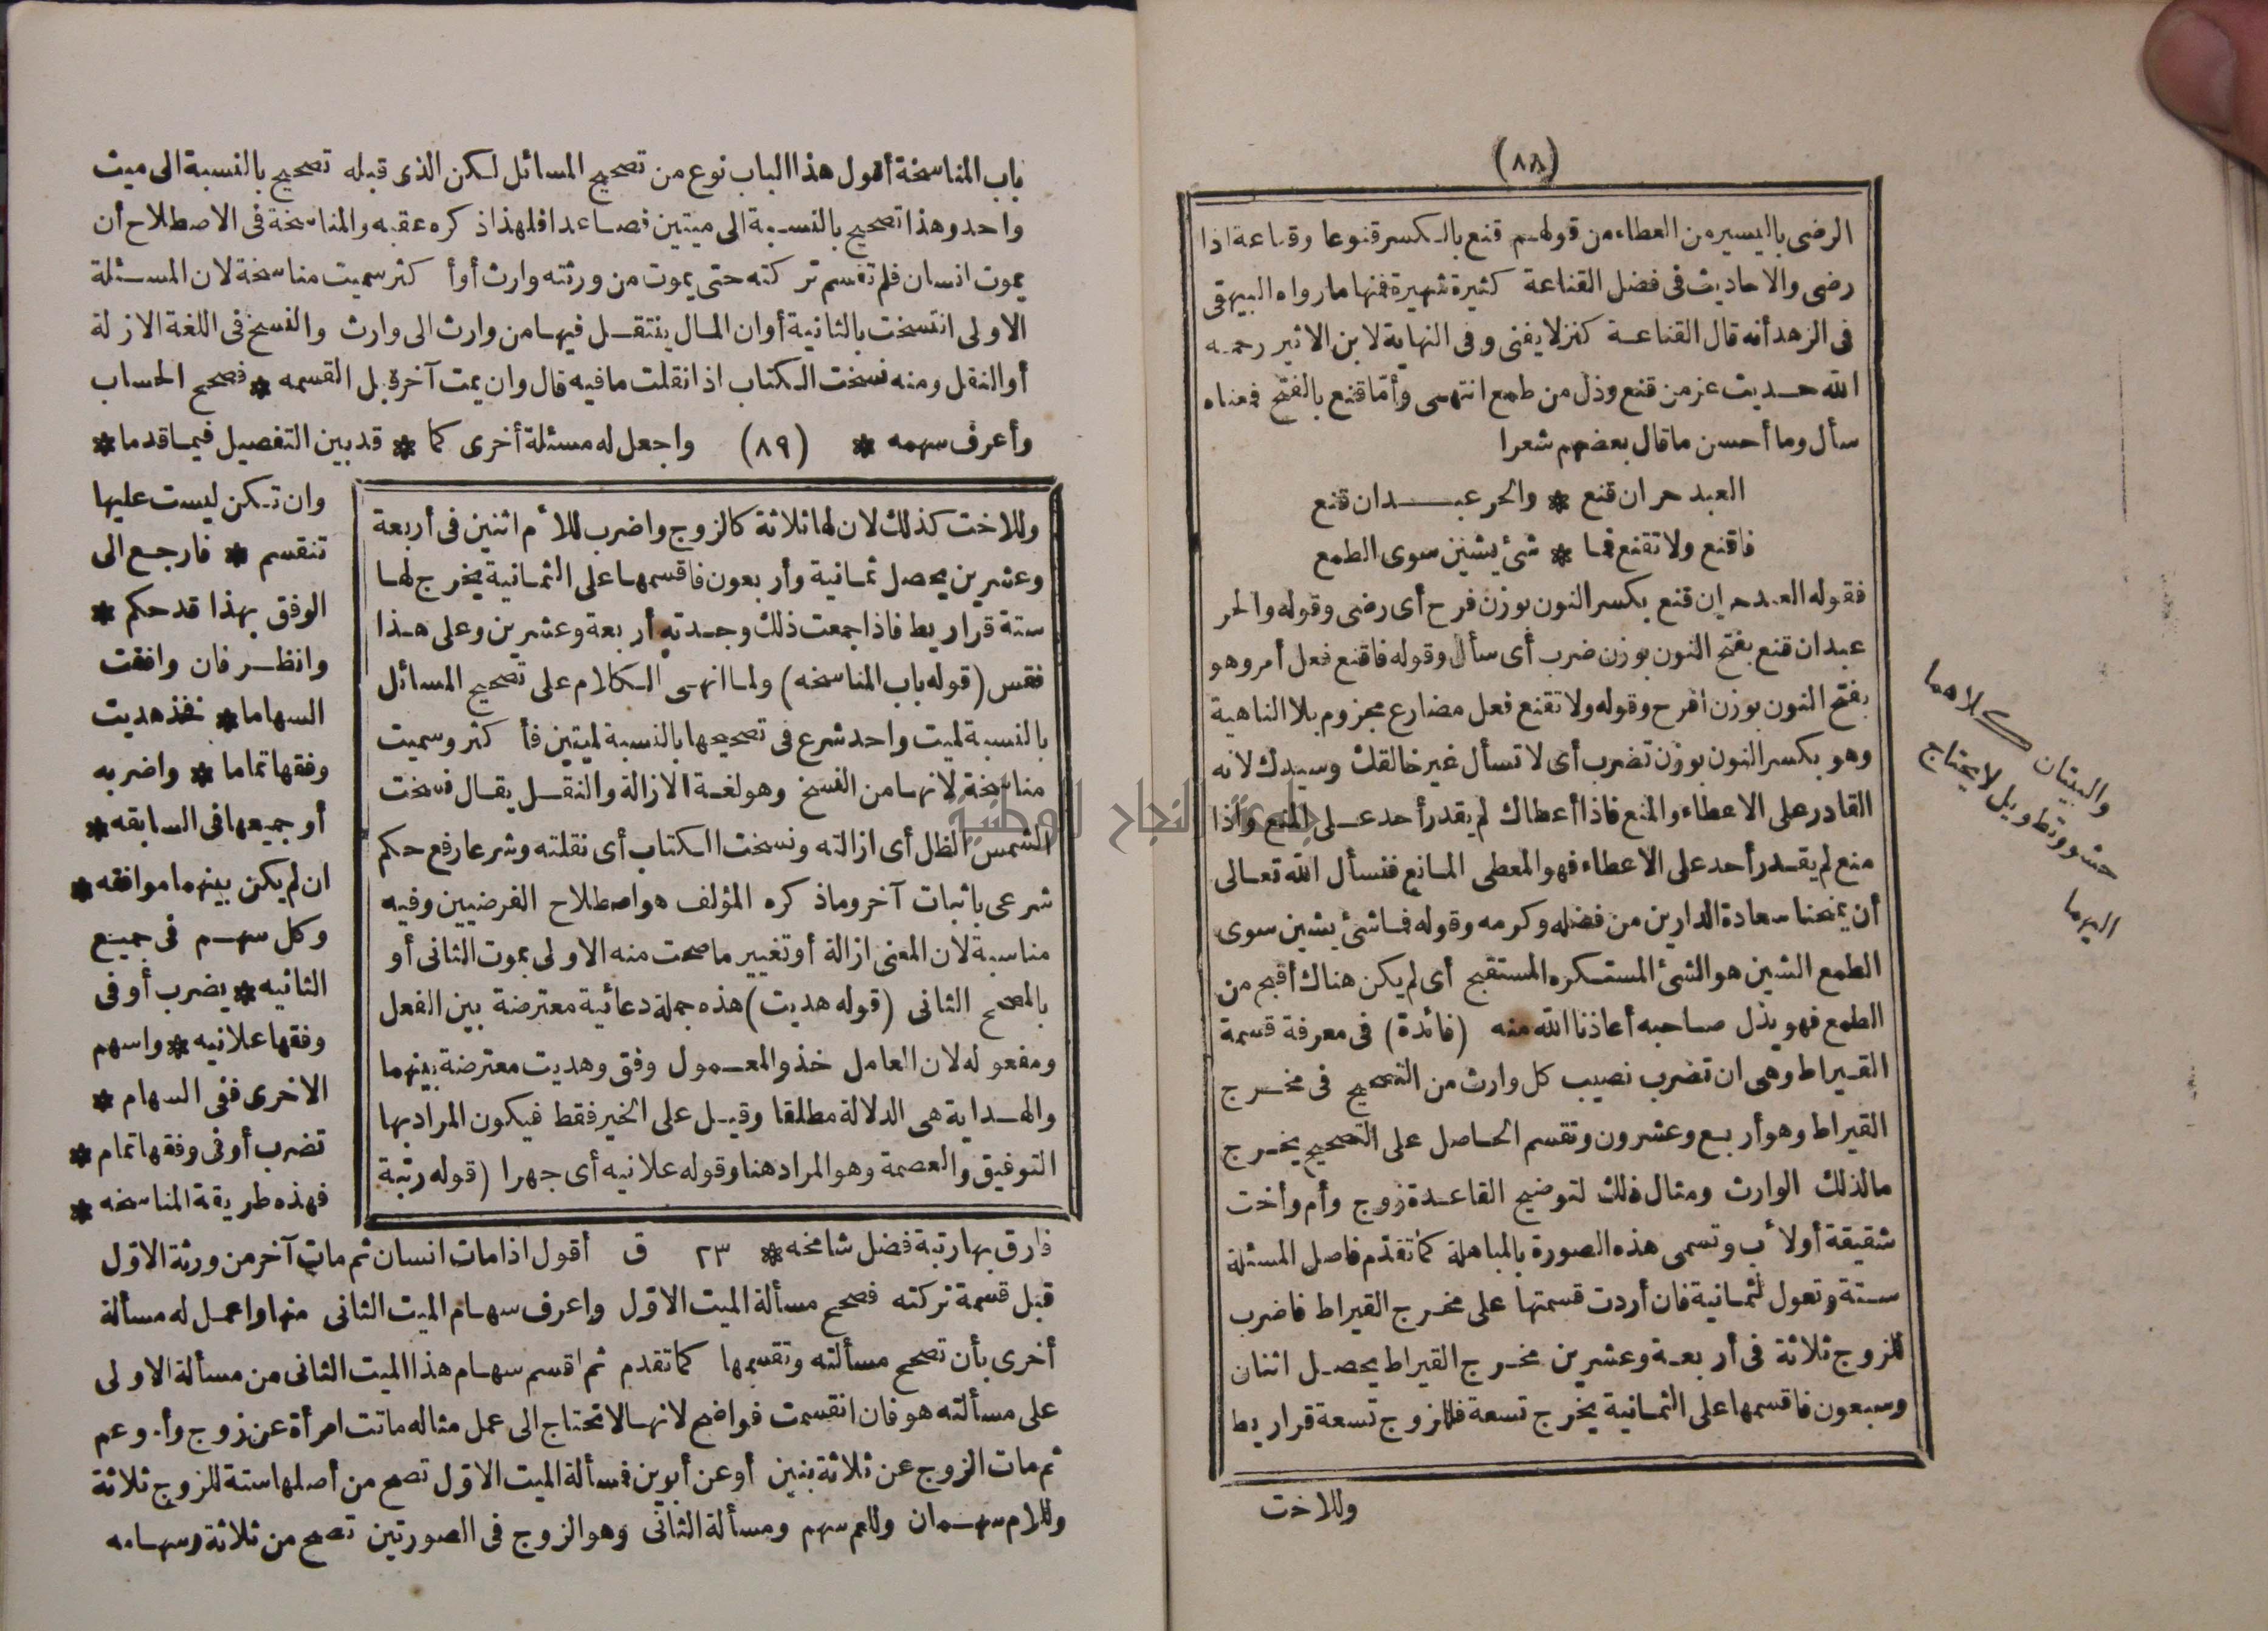 (٨٨)
الرضى باليسير من العطاء من قولهم قنع بالكسر قنوعا وقناعة اذا
رضى والاحاديث فى فضل القناعة كثيرة شهيرة فمنها ما رواه البيهقى
فى الزهد أنه قال القناعة كنز لا يفنى وفى النهاية لابن الاثير رحمه
الله حديث عز من قنع وذل من طمع انتهى وأمّا قنع بالفتح فمعناه
سأل وما أحسن ما قال بعضهم شعرا
العبد حر ان قنع * والحر عبد ان قنع
فاقنع ولا تقنع فما * شئ يشين سوى الطمع
فقوله العبد حر إن قنع بكسر النون بوزن فرح أى رضى وقوله والحر
عبد ان قنع بفتح النون بوزن ضرب أى سأل وقوله فاقنع فعل أمر وهو
بفتح النون بوزن افرح وقوله ولا تقنع فعل مضارع مجزوم بلا الناهية
وهو بكسر النون بوزن تضرب أى لا تسأل غير خالقك وسيدك لانه
القادر على الاعطاء والمنع فاذا أعطاك لم يقدر أحد على المنع واذا
منع لم يقدر أحد على الاعطاء فهو المعطى المانع فنسأل الله تعالى
أن يمنحنا سعادة الدارين من فضله وكرمه وقوله فما شئ يشين سوى
الطمع الشين هو الشئ المستكره المستقبح أى لم يكن هناك أقبح من
الطمع فهو يذل صاحبه أعاذنا الله منه (فائدة) فى معرفة قسمة
القيراط وهى ان تضرب نصيب كل وارث من التصحيح فى مخرج
القيراط وهو أربع وعشرون وتقسم الحاصل على التصحيح يخرج
مالذلك الوارث ومثال ذلك لتوضيح القاعدة زوج وأم وأخت
شقيقة أولأب وتسمى هذه الصورة بالمباهلة كما تقدّم فاصل المسئلة
ستة وتعول لثمانية فان أردت قسمتها على مخرج القيراط فاضرب
للزوج ثلاثة فى أربعة وعشرين مخرج القيراط يحصل اثنان
وسبعون فاقسمها على الثمانية يخرج تسعة فللزوج تسعة قراريط
وللاخت
والبيتان كلاهما
حشو وتطويل لا يحتاج
اليهما
باب المناسخة أقول هذا الباب نوع من تصحيح المسائل لكن الذى قبله تصحيح بالنسبة الى ميت
واحد وهذا تصحيح بالنسبة الى ميتين فصاعدا فلهذا ذكره عقبه والمناسخة فى الاصطلاح أن
يموت انسان فلم تقسم تركته حتى يموت من ورثته وارث أوأكثر سميت مناسخة لان المسئلة
الاولى انتسخت بالثانية أوان المال ينتقل فيها من وارث الى وارث والنسخ فى اللغة الازلة
أوالنقل ومنه نسخت الكتاب اذا نقلت مافيه قال وان يمت آخر قبل القسمه * فصحح الحساب
وأعرف سهمه * (٨٩) واجعل له مسئلة أخرى كما * قد بين التفصيل فيما قدما *
وان تكن ليست عليها
تنقسم * فارجع الى
الوفق بهذا قد حكم *
وانظر فان وافقت
السهاما * فخذ هديت
وفقها تماما * واضربه
أو جميعها فى السابقه *
ان لم يكن بينهما موافقه *
وكل سهم فى جميع
الثانيه * يضرب أو فى
وفقها علانيه * واسهم
الاخرى ففى السهام *
تضرب أو فى وفقها تمام *
فهذه طريقة المناسخه *
وللاخت كذلك لان لها ثلاثة كالزوج واضرب للأم اثنين فى أربعة
وعشرين يحصل ثمانية وأربعون فاقسمها على الثمانية يخرج لها
ستة قراريط فاذا جمعت ذلك وجدته أربعة وعشرين وعلى هذا
فقس (قوله باب المناسخه) ولما انهى الكلام على تصحيح المسائل
بالنسبة لميت واحد شرع فى تصحيحها بالنسبة لميتين فأكثر وسميت
مناسخة لانها من النسخ وهو لغة الازالة والنقل يقال نسخت
الشمس الظل أى ازالته ونسخت الكتاب أى نقلته وشرعا رفع حكم
شرعى باثبات آخر وماذكره المؤلف هو اصطلاح الفرضيين وفيه
مناسبة لان المعنى ازالة أو تغيير ما صحت منه الاولى بموت الثانى أو
بالمصحح الثانى (قوله هديت) هذه جملة دعائية معترضة بين الفعل
ومفعوله لان العامل خذ والمعمول وفق وهديت معترضة بينهما
والهداية هى الدلالة مطلقا وقيل على الخير فقط فيكون المراد بها
التوفيق والعصمة وهو المراد هنا وقوله علانيه أى جهرا (قوله رتبة
فارق بها رتبة فضل شامخه * ٢٣ ق أقول اذا مات انسان ثم مات آخر من ورثة الاوّل
قبل قسمة تركته فصحح مسألة الميت الاوّل واعرف سهام الميت الثانى منها واعمل له مسألة
أخرى بأن تصحح مسألته وتقسمها كما تقدم ثم اقسم سهام هذا الميت الثانى من مسألة الاولى
على مسألته هو فان انقسمت فواضح لانها لا تحتاج الى عمل مثاله ماتت امرأة عن زوج وأم وعم
ثم مات الزوج عن ثلاثة بنين أو عن أبوين فمسألة الميت الاوّل تصح من أصلها ستة للزوج ثلاثة
وللام سهمان وللعم سهم ومسألة الثانى وهو الزوج فى الصورتين تصح من ثلاثة وسهامه
جامعة النجاح الوطنية